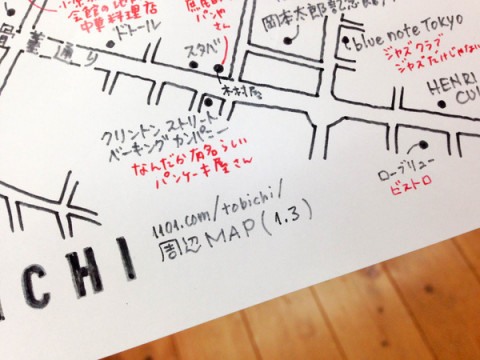 会館の地下
中華料理店
ドトール
パンや
さん
岡本太郎記念館
blue note TOKYO
ジャズクラブ
ジャズだけじゃない
骨董通り
スタバ
木村屋
HENRI
CUI
クリントンストリート
ベーキングカンパニー
なんだか有名らしい
パンケーキ屋さん
ローブリュー
ビストロ
1101.com/tobichi/
周辺MAP(1.3)
CHI